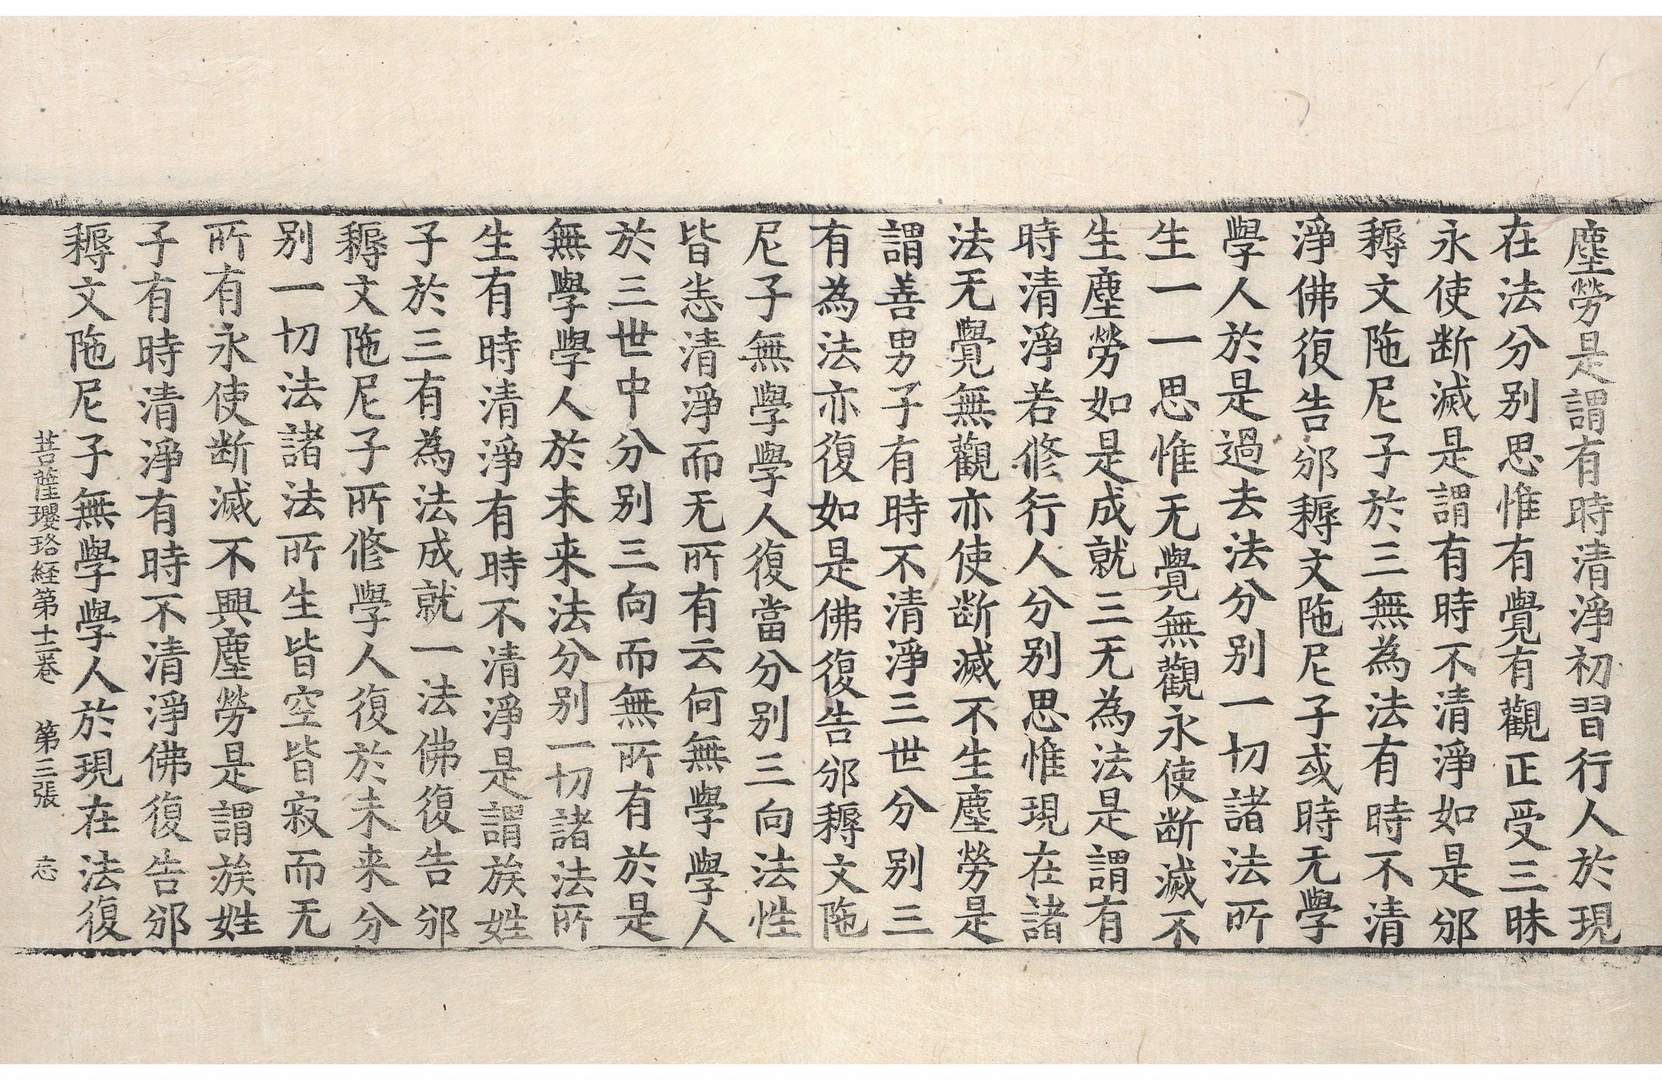 塵勞是謂有時清淨初習行人於現
在法分别思惟有覺有觀正受三昧
永使断滅是謂有時不清淨如是邠
耨文陁尼子於三無為法有時不清
淨佛復告邠耨文陁尼子或時无學
學人於是過去法分别一切諸法所
生一一思惟无覺無觀永使断滅不
生塵勞如是成就三无為法是謂有
時清淨若修行人分别思惟現在諸
法无覺無觀亦使断滅不生塵勞是
謂善男子有時不清淨三世分别三
有為法亦復如是佛復告邠耨文陁
尼子無學學人復當分别三向法性
皆悉清淨而无所有云何無學學人
於三世中分别三向而無所有於是
無學學人於未来法分别一切諸法所
生有時清淨有時不清淨是謂族姓
子於三有為法成就一法佛復告邠
耨文陁尼子所修學人復於未来分
别一切法諸法所生皆空皆寂而无
所有永使断滅不興塵勞是謂族姓
子有時清淨有時不清淨佛復告邠
耨文陁尼子無學學人於現在法復
菩薩瓔珞経第十二卷 第三張 志